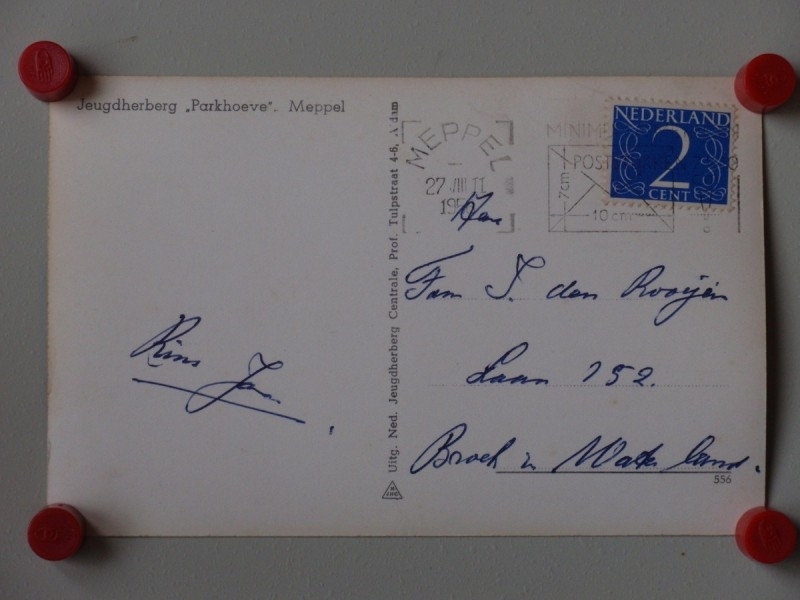 Jeugdherberg „Parkhoeve". Meppel
Uitg. Ned. Jeugdherberg Centrale, Prof. Tulpstraat 4-6, A'dam
MEPPEL
27 VIII 11
NEDERLAND
2
CENT
MINIM
POST
10 cm
Fam J. den Rooijen
Laan 152.
Broek in Waterland.
Rins Jan
556